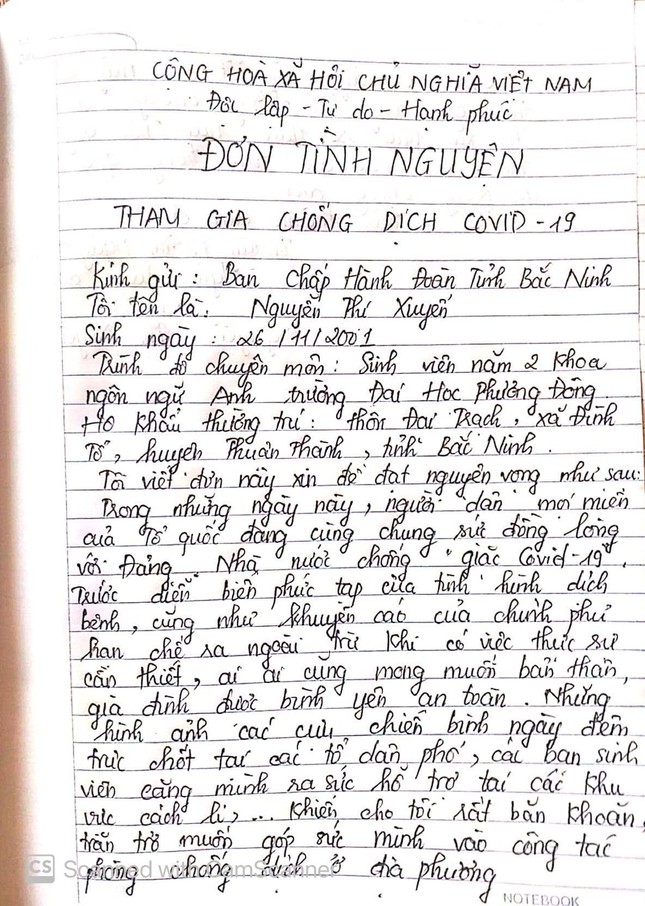 CỘNG HOÀ XÃ HỘI CHỦ NGHĨA VIỆT NAM
Độc lập - Tự do - Hạnh phúc
ĐƠN TÌNH NGUYỆN
THAM GIA CHỐNG DỊCH COVID - 19
Kính gửi : Ban Chấp Hành Đoàn Tỉnh Bắc Ninh
Tôi tên là: Nguyễn Thị Xuyến
Sinh ngày : 26 / 11 / 2001
Trình độ chuyên môn : Sinh viên năm 2 khoa
ngôn ngữ Anh trường Đại Học Phương Đông.
Hộ khẩu thường trú : thôn Đại Trạch, xã Đình
Tổ, huyện Thuận Thành, tỉnh Bắc Ninh.
Tôi viết đơn này xin đề đạt nguyện vọng như sau:
Trong những ngày này, người dân mọi miền
của Tổ quốc đang cùng chung sức đồng lòng
với Đảng, Nhà nước chống "giặc Covid-19".
Trước diễn biến phức tạp của tình hình dịch
bệnh, cũng như khuyến cáo của chính phủ
hạn chế ra ngoài trừ khi có việc thực sự
cần thiết, ai ai cũng mong muốn bản thân,
gia đình được bình yên an toàn. Nhưng
hình ảnh các cựu chiến binh ngày đêm
trực chốt tại các tổ dân phố, các bạn sinh
viên căng mình ra sức hỗ trợ tại các khu
vực cách li, ... khiến cho tôi rất băn khoăn,
trăn trở muốn góp sức mình vào công tác
phòng chống dịch ở địa phương
CS Scanned with CamScanner
NOTEBOOK